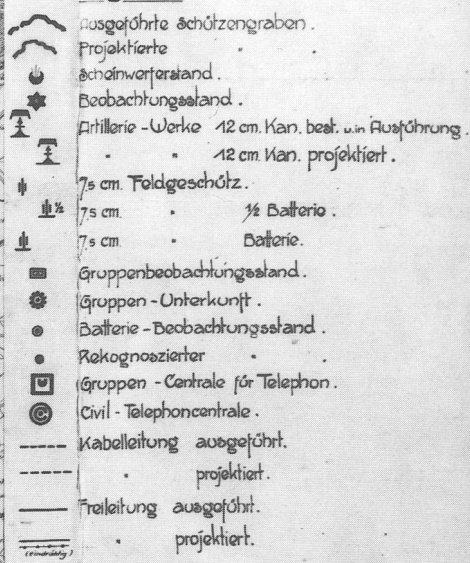 Ausgeführte Schützengraben.
Projektierte " .
Scheinwerferstand.
Beobachtungsstand.
Artillerie-Werke 12 cm. Kan. best. u. in Ausführung.
" " 12 cm. Kan. projektiert.
7,5 cm. Feldgeschütz.
½ 7,5 cm. " ½ Batterie.
7,5 cm. " Batterie.
Gruppenbeobachtungsstand.
Gruppen-Unterkunft.
Batterie-Beobachtungsstand.
Rekognoszierter " .
Gruppen-Centrale für Telephon.
Civil-Telephoncentrale.
Kabelleitung ausgeführt.
" projektiert.
Freileitung ausgeführt.
" projektiert.
(Eindrähtig)